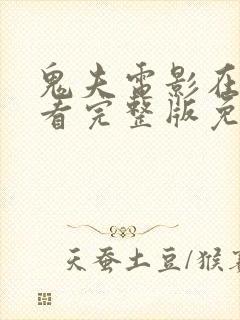 鬼夫电影在
看完整版免
天蚕土豆/猴